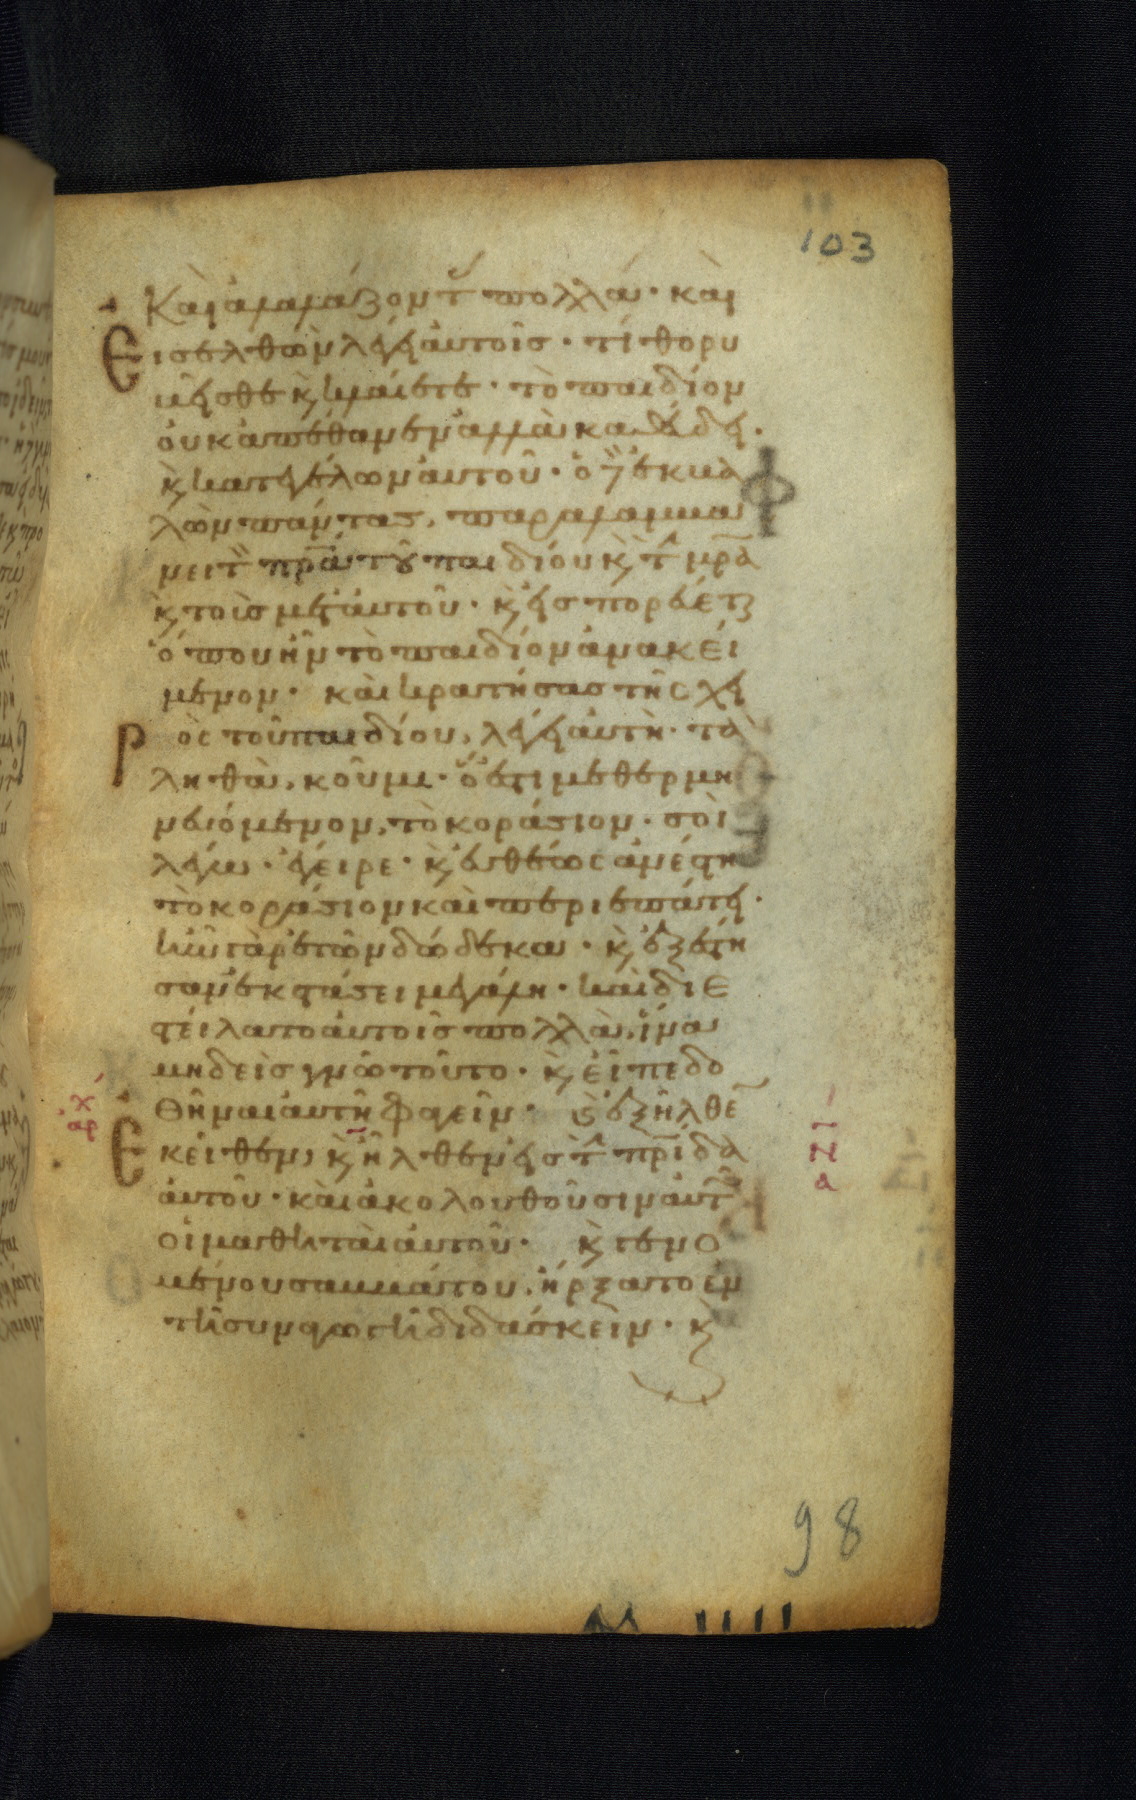 103
Καὶ ἀλαλάζοντ(ας) πολλά· καὶ
Εἰσελθὼν λέγει αὐτοῖς· τί θορυ
βεῖσθε κ(αὶ) κλαίετε· τὸ παιδίον
οὐκ ἀπέθανεν ἀλλὰ καθεύδει·
κ(αὶ) κατεγέλων αὐτοῦ· ὁ δὲ ἐκβα
λὼν πάντας, παραλαμβά
νει τ(ὸν) π(ατέ)ρα τοῦ παιδίου κ(αὶ) τ(ὴν) μ(ητέ)ρα
κ(αὶ) τοὺς μετ' αὐτοῦ· κ(αὶ) εἰσπορεύετ(αι)
ὅπου ἦν τὸ παιδίον ἀνακεί
μενον· καὶ κρατήσας τῆς χει
ρὸς τοῦ παιδίου, λέγει αὐτῇ· τα
ληθὰ, κοῦμι· ὅ ἐστι μεθερμη
νευόμενον, τὸ κοράσιον· σοὶ
λέγω· ἔγειρε· κ(αὶ) εὐθέως ἀνέστη
τὸ κοράσιον καὶ περιεπάτει·
ἦν γὰρ ἐτῶν δώδεκα· κ(αὶ) ἐξέστη
σαν ἐκστάσει μεγάλη· καὶ διε
στείλατο αὐτοῖς πολλὰ, ἵνα
μηδεὶς γνῶ τοῦτο· κ(αὶ) εἶπε δο
θῆναι αὐτῇ φαγεῖν· κ(αὶ) ἐξῆλθε(ν)
ἐκεῖθεν, κ(αὶ) ἦλθεν εἰς τ(ὴν) π(ατ)ρίδα
αὐτοῦ· καὶ ἀκολουθοῦσιν αὐτῶ
οἱ μαθηταὶ αὐτοῦ· κ(αὶ) γενο
μένου σαββάτου, ἤρξατο ἐν
τῆ συναγωγῆ διδάσκειν· κ(αὶ)
98